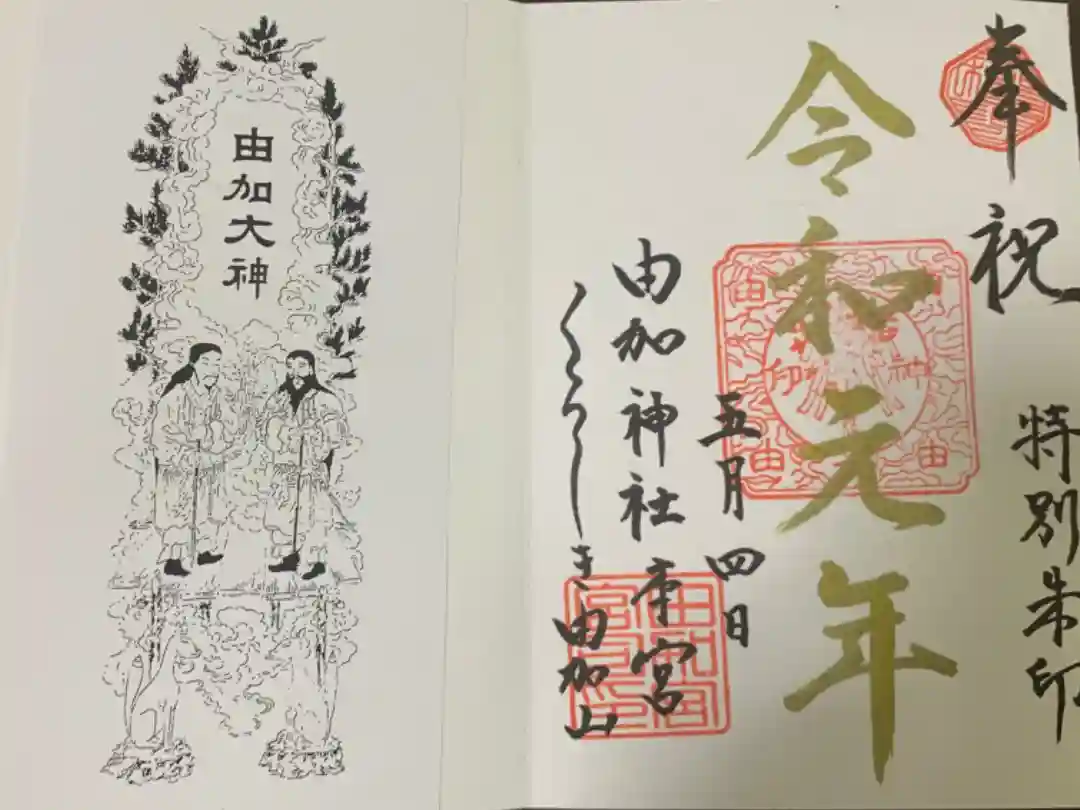 奉祝
特別朱印
令和元年
五月四日
由加神社本宮
くらしき由加山
由加大神